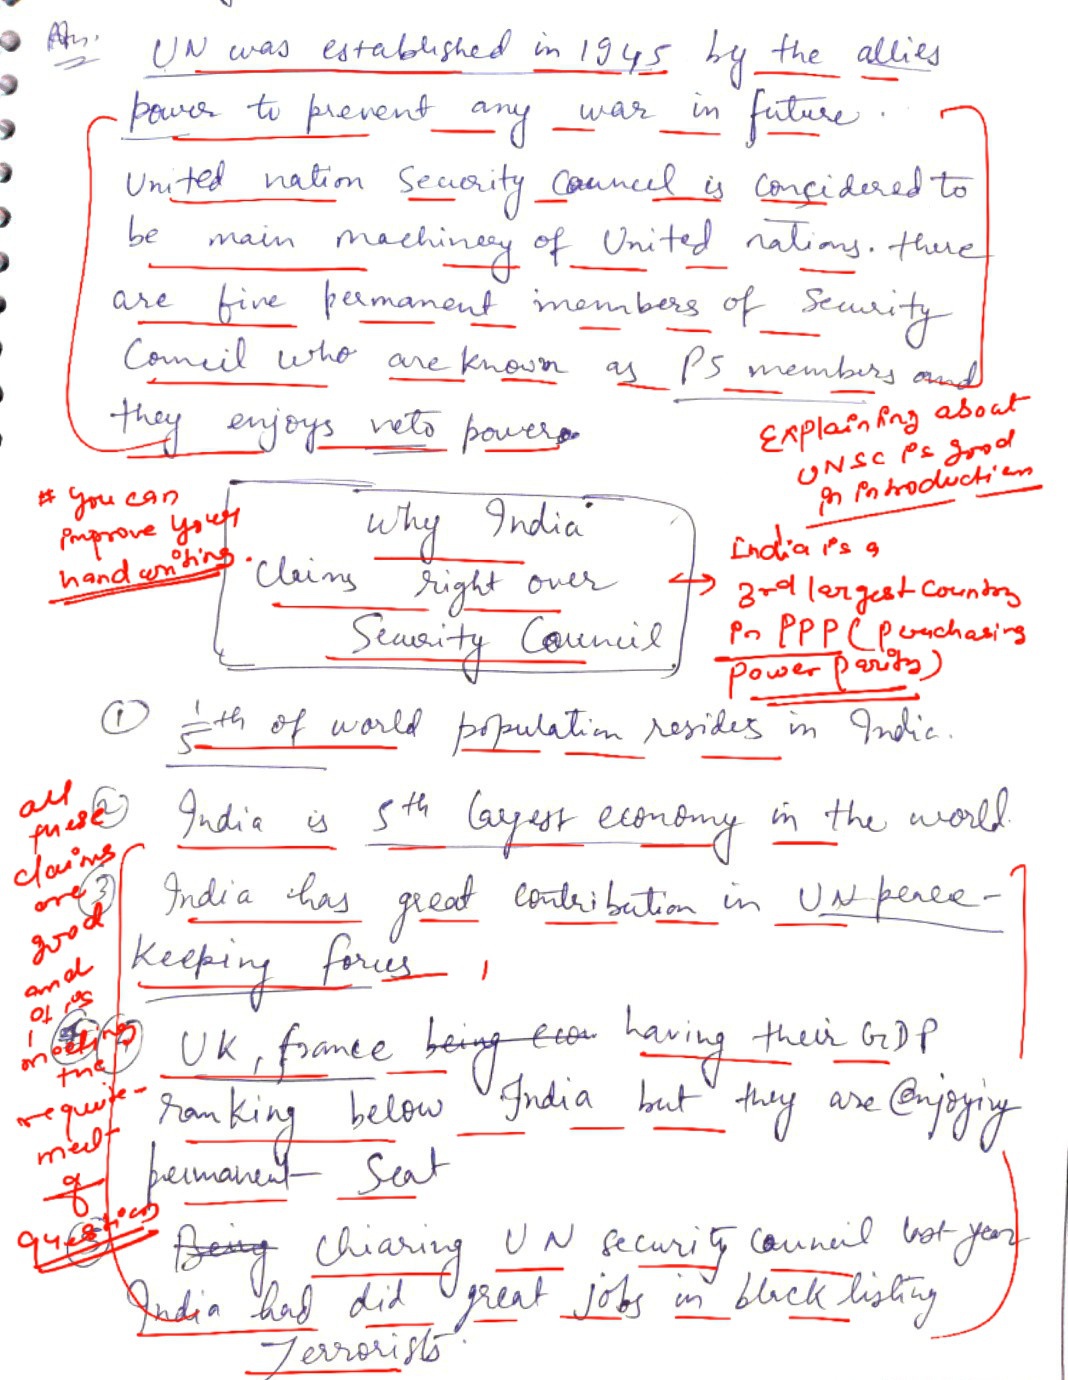 Ans.
UN was established in 1945 by the allies
power to prevent any war in future.
United nation Security Council is considered to
be main machinery of United nations. there
are five permanent members of Security
Council who are known as P5 members and
they enjoys veto power.
Explaining about
UNSC is good
in introduction
# you can
improve your
handwriting.
Why India
Claims right over
Security Council
India is a
3rd largest country
in PPP (purchasing
power parity)
① 1/5 th of world population resides in India.
② India is 5th largest economy in the world.
③ India has great contribution in UN peace-
keeping forces
④ UK, france being econ having their GDP
ranking below India but they are enjoying
permanent seat
⑤ Being chiaring UN security council last year
India had did great jobs in black listing
Terrorists.
all
these
claims
are
good
and
it is
meeting
the
require-
ment
of
question